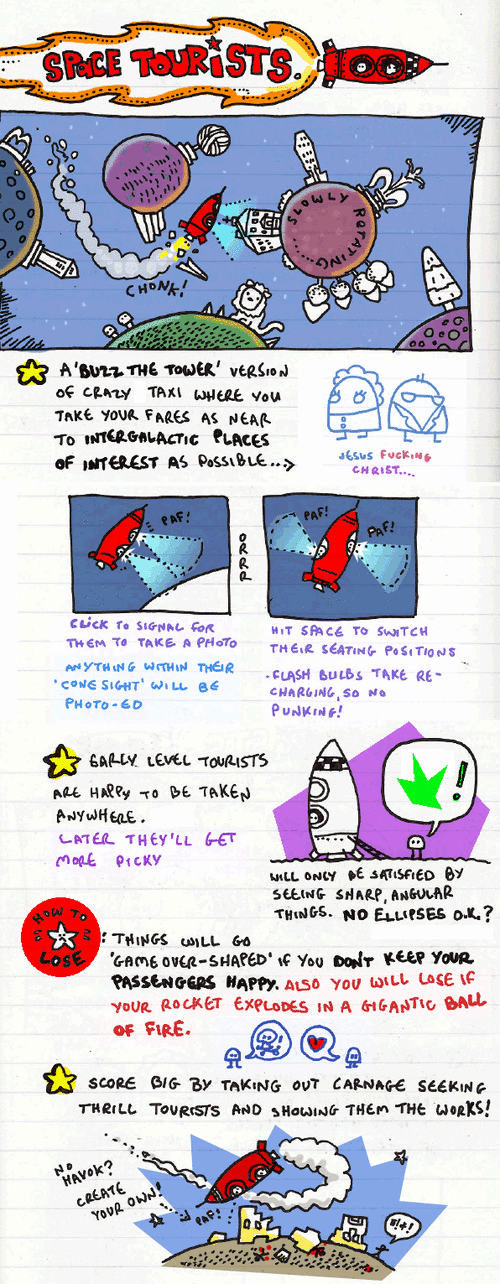 SPACE TOURISTS.
SLOWLY ROTATING......
CHONK!
A 'BUZZ THE TOWER' VERSION
OF CRAZY TAXI WHERE YOU
TAKE YOUR FARES AS NEAR
TO INTERGALACTIC PLACES
OF INTEREST AS POSSIBLE...>
JESUS FUCKING
CHRIST....
PAF!
ORRR
PAF!
PAF!
CLICK TO SIGNAL FOR
THEM TO TAKE A PHOTO
ANYTHING WITHIN THEIR
'CONE SIGHT' WILL BE
PHOTO-ED
HIT SPACE TO SWITCH
THEIR SEATING POSITIONS
- FLASH BULBS TAKE RE-
CHARGING, SO NO
PUNKING!
EARLY LEVEL TOURISTS
ARE HAPPY TO BE TAKEN
ANYWHERE.
LATER THEY'LL GET
MORE PICKY
!
WILL ONLY BE SATISFIED BY
SEEING SHARP, ANGULAR
THINGS. NO ELLIPSES O.K.?
HOW TO
LOSE
: THINGS WILL GO
'GAME OVER-SHAPED' IF YOU DON'T KEEP YOUR
PASSENGERS HAPPY. ALSO YOU WILL LOSE IF
YOUR ROCKET EXPLODES IN A GIGANTIC BALL
OF FIRE.
SCORE BIG BY TAKING OUT CARNAGE SEEKING
THRILL TOURISTS AND SHOWING THEM THE WORKS!
NO
HAVOK?
CREATE
YOUR OWN!
PAF!
!!+!